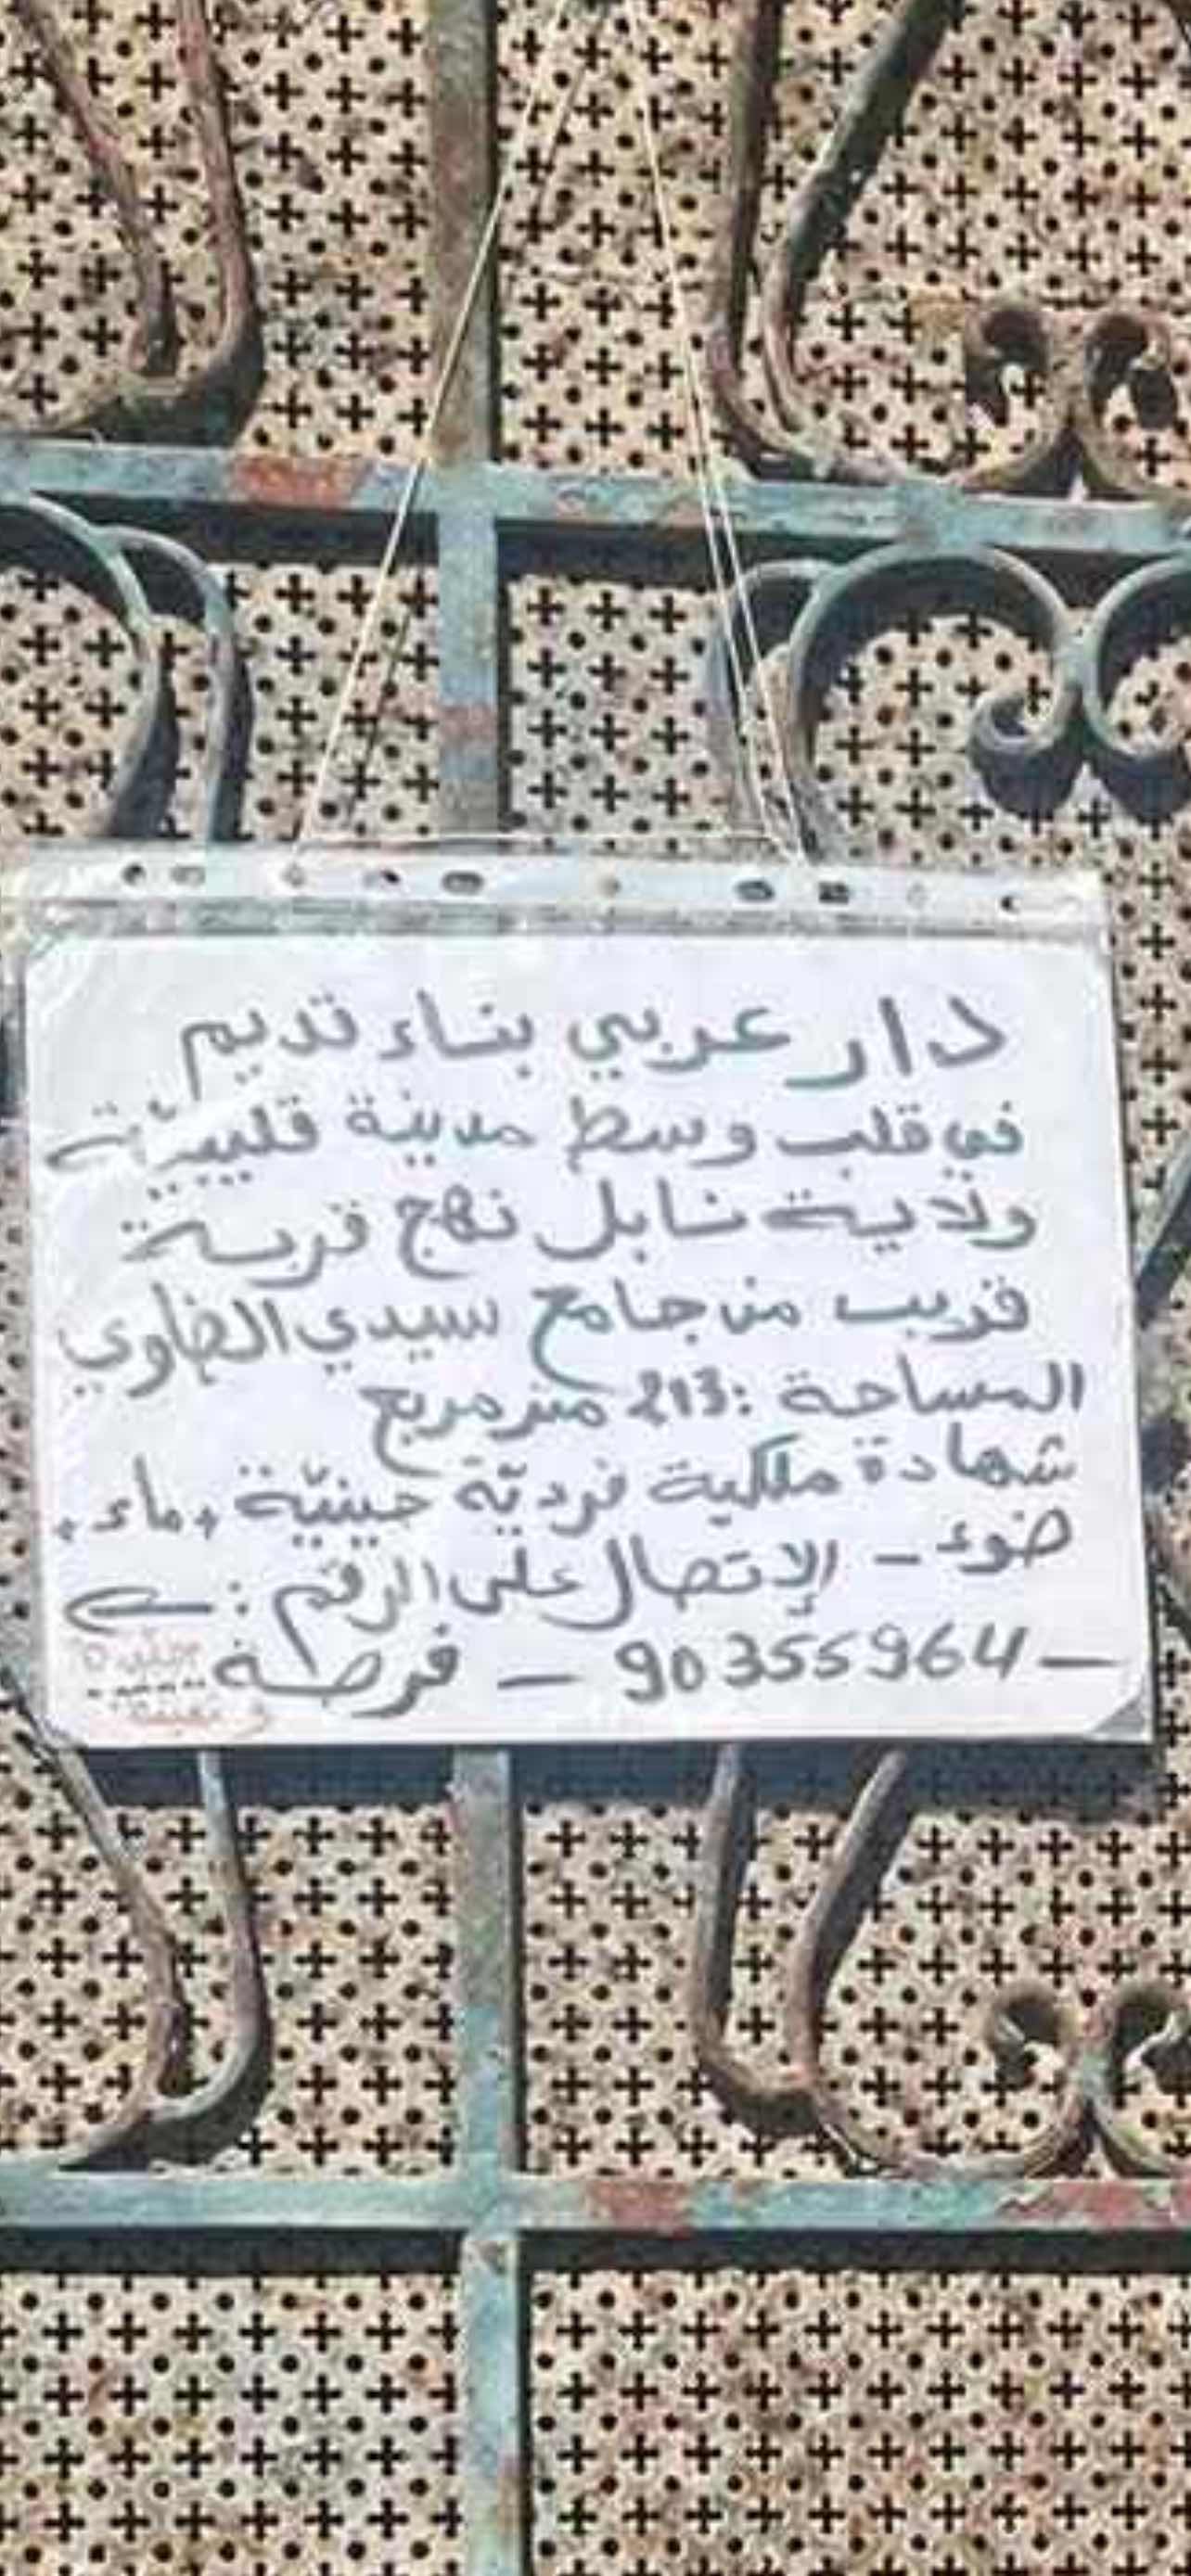 دار عربي بناء قديم
في قلب وسط مدينة قليبية
ولاية نابل نهج قربة
قريب من جامع سيدي الضاوي
المساحة : 213 متر مربع
شهادة ملكية فردية حينيّة + ماء +
ضوء - الإتصال على الرقم :
- 90355964 - فرصة